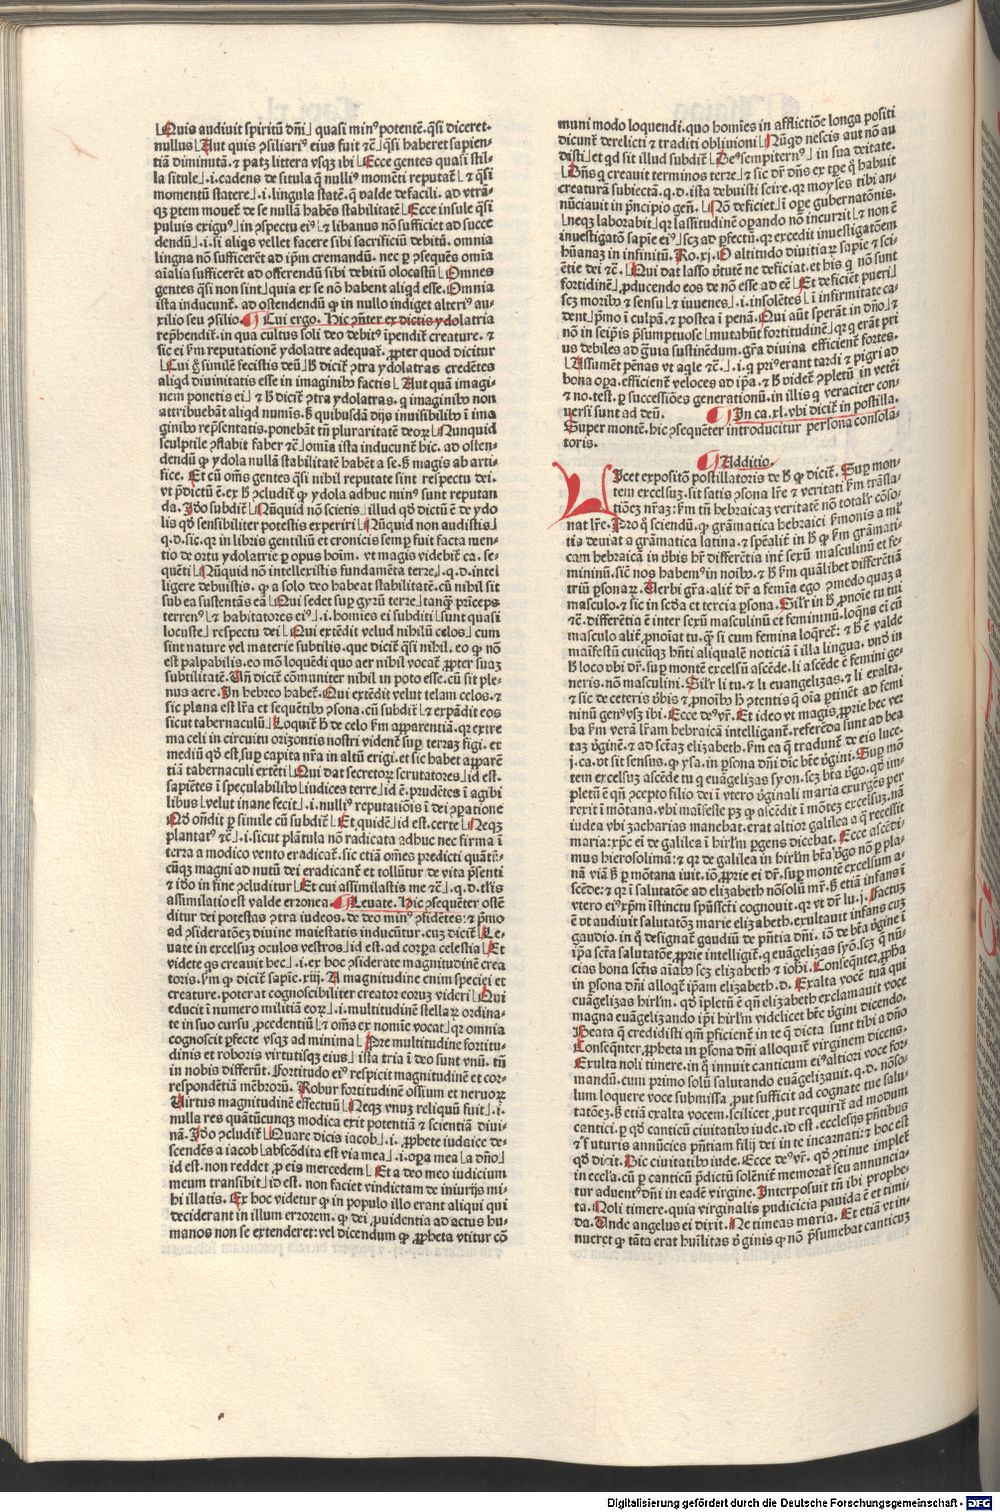 Quis audiuit spiritū dñi quasi minꝰ potentē. q̈si diceret.
nullus Aut quis ꝯsiliariꝰ eius fuit ⁊c̄ q̈si haberet sapien-
tiā diminutā. ⁊ patꝫ littera vsqꝫ ibi Ecce gentes quasi stil-
la situle .i. cadens de situla q̄ nulliꝰ momēti reputat᷑ ⁊ q̈si
momentū statere .i. lingula statē. q̄ valde de facili. ad vtrā-
qꝫ ꝑtem mouet᷑ de se nullā habēs stabilitatē Ecce insule q̈si
puluis exiguꝰ in ꝓspectu eiꝰ ⁊ libanus nō sufficiet ad succe
dendū .i. si aliqs vellet facere sibi sacrificiū debitū. omnia
lingna nō sufficerēt ad ip̄m cremandū. nec ꝑ ꝯsequēs omīa
aīalia sufficerēt ad offerendū sibi debitū olocastū Omnes
gentes q̈si non sint quia ex se nō habent aliqd esse. Omnia
ista inducunt᷑. ad ostendendū ꝙ in nullo indiget alteriꝰ au-
xilio seu ꝯsilio. Cui ergo. Hic ꝯn̄ter ex dictis ydolatria
rep̄hendit᷑. in qua cultus soli deo debitꝰ īpendit᷑ creature. ⁊
sic ei ẜm reputationē ydolatre adequat᷑. ꝓpter quod dicitur
Cui g̊ similē fecistis deū ꝉ dicit᷑ ꝯtra ydolatras credētes
aliqd diuinitatis esse in imaginibꝰ factis Aut quā imagi-
nem ponetis ei ⁊ ꝉ dicit᷑ ꝯtra ydolatras. q̄ imaginibꝰ non
attribuebāt aliqd numīs. ẜ quibusdā dijs inuisibilibꝰ ī ima
ginibꝰ rep̄sentatis. ponebāt tn̄ pluraritatē deorꝝ Nunquid
sculptile ꝯflabit faber ⁊c̄ omīa ista inducunt᷑ hic. ad osten-
dendū ꝙ ydola nullā stabilitatē habēt a se. ẜ magis ab arti-
fice. Et cū om̄s gentes q̈si nihil reputate sint respectu dei.
vt p̄dictū ē. ex ꝉ ꝯcludit᷑ ꝙ ydola adhuc minꝰ sunt reputan
da. Ido subdit᷑ Nūquid nō scietis illud qd̄ dictū ē de ydo
lis qd̄ sensibiliter potestis experiri Nūquid non audistis
q.d. sic. qꝛ in libris gentiliū et cronicis semꝑ fuit facta men-
tio de ortu ydolatrie ꝑ opus hoīm. vt magis videbit᷑ ca. se-
quēti Nūquid nō intellexistis fundamēta terre .q.d. intel
ligere debuistis. ꝙ a solo deo habeat stabilitatē. cū nihil sit
sub ea sustentās eā Qui sedet suꝑ gyrū terre tanq̄ prīceps
terrenꝰ ⁊ habitatores eiꝰ .i. homīes ei subditi sunt quasi
locuste respectu dei Qui extēdit velud nihilū celos cum
sint nature vel materie subtilis. que dicit᷑ q̈si nihil. eo ꝙ nō
est palpabilis. eo mō loquēdi quo aer nihil vocat᷑ ꝓpter suaꝫ
subtilitatē. Vn̄ dicit᷑ cōmuniter nihil in poto esse. cū sit ple-
nus aere. In hebreo habet᷑. Qui extēdit velut telam celos. ⁊
sic plana est lr̄a et sequētibꝰ ꝯsona. cū subdit᷑ ⁊ expādit eos
sicut tabernaculū Loquit᷑ ꝉ de celo ẜm apparentiā. qꝛ extre
ma celi in circuitu orizontis nostri vident᷑ suꝑ terraꝫ figi. et
mediū qd̄ est suꝑ capita nr̄a in altū erigi. et sic habet apparē
tiā tabernaculi extēti Qui dat secretorꝝ scrutatores id est.
sapiētes ī speculabilibꝰ iudices terre id ē. prudētes ī agibi
libus velut inane fecit .i. nulliꝰ reputatiōis ī dei ꝯparatione
Qd̄ on̄dit ꝑ simile cū subdit᷑ Et quidē id est. certe Neqꝫ
plantatꝰ ⁊c̄ .i. sicut plātula nō radicata adhuc nec firma ī
terra a modico vento eradicat᷑. sic etiā om̄es predicti quātū-
cūqꝫ magni ad nutū dei eradicant᷑ et tollūtur de vita p̄senti
⁊ ido in fine ꝯcluditur Et cui assimilastis me ⁊c̄ .q.d. tl̄is
assimilatio est valde erronea. Leuate. Hic ꝯsequēter ostē
ditur dei potestas ꝯtra iudeos. de deo minꝰ ꝯfidētes: ⁊ p̄mo
ad ꝯsideratōeꝫ diuine maiestatis inducūtur. cuꝫ dicit᷑ Le-
uate in excelsuꝫ oculos vestros id est. ad corꝑa celestia Et
videte qs creauit hec .i. ex hoc ꝯsiderate magnitudinē crea
toris. ẜm ꝙ dicit᷑ sapīe. xiij. A magnitudine enim speciei et
creature. poterat cognoscibiliter creator eoruꝫ videri Qui
educit ī numero militiā eorꝝ .i. multitudinē stellarꝝ ordina-
te in suo cursu ꝓcedentiū ⁊ om̄s ex nomīe vocat qꝛ omnia
cognoscit ꝑfecte vsqꝫ ad minima Pre multitudine fortitu-
dinis et roboris virtutisqꝫ eius ista tria ī deo sunt vnū. tn̄
in nobis differūt. Fortitudo eiꝰ respicit magnitudinē et cor-
respondētiā mēbrorū. Robur fortitudinē ossium et neruorꝝ
Virtus magnitudinē effectuū Neqꝫ vnuꝫ reliquū fuit .i.
nulla res quātūcunqꝫ modica exit potentiā ⁊ scientiā diui-
nā. Ido ꝯcludit᷑ Quare dicis iacob .i. ꝓphete iudaice de-
scendēs a iacob abscōdita est via mea .i. oꝑa mea a dn̄o
id est. non reddet ꝓ eis mercedem Et a deo meo iudicium
meum transibit id est. non faciet vindictam de iniurijs mi-
hi illatis. Ex hoc videtur ꝙ in populo illo erant aliqui qui
deciderant in illum errorem. ꝙ dei ꝓuidentia ad actus hu-
manos non se extenderet: vel dicendum ꝙ ꝓpheta vtitur cō
muni modo loquendi. quo homīes in afflictiōe longa positi
dicunt᷑ derelicti ⁊ traditi obliuioni Nūqd nescis aut nō au
disti et qd sit illud subdit᷑ Deꝰ sempiternꝰ in sua deitate.
Dn̄s q creauit terminos terre ⁊ sic dr̄ dn̄s ex tꝑe q̊ habuit
creaturā subiectā. q.d. ista debuisti scire. qꝛ moyses tibi an-
nūciauit in p̄ncipio gen̄. Nō deficiet ī oꝑe gubernatōnis.
neqꝫ laborabit qꝛ lassitudinē oꝑando nō incurrit ⁊ non ē
inuestigatō sapīe eiꝰ scꝫ ad ꝑfectū. qꝛ excedit inuestigatōem
hūanaꝫ in infinitū. Ro. xj. O altitudo diuitiarꝝ sapīe ⁊ sci-
ētie dei ⁊c̄. Qui dat lasso v̓tutē ne deficiat. et his q nō sunt
fortidinē ꝓducendo eos de nō esse ad eē Et deficiēt pueri
scꝫ moribꝰ ⁊ sensu ⁊ iuuenes .i. insolētes ī infirmitate ca-
dent p̄mo ī culpā. ⁊ postea ī penā. Qui aūt sperāt in dn̄o ⁊
nō in seip̄is p̄sumptuose mutabūt fortitudinē qꝛ q erāt pri
us debiles ad g̊uia sustinēdum. gr̄a diuina efficient᷑ fortes.
Assument pēnas vt aqle ⁊c̄ .i. q priꝰ erant tardi ⁊ pigri ad
bona oꝑa. efficient᷑ veloces ad ip̄a. ⁊ ꝉ videt᷑ ꝯpletū in veteri
⁊ no. test. ꝑ successiōes generationū. in illis q veraciter con-
uersi sunt ad deū. In ca. xl. vbi dicit᷑ in postilla.
Super montē. hic ꝯsequēter introducitur persona consola-
toris.
Additio.
Licet expositō postillatoris de ꝉ ꝙ dicit᷑. Suꝑ mon-
tem excelsuꝫ. sit satis ꝯsona lr̄e ⁊ veritati ẜm trāsla-
tiōeꝫ nr̄aꝫ: ẜm tn̄ hebraicaꝫ veritatē nō totalr̄ cōso-
nat lr̄e. Pro q̊ sciendū. ꝙ grāmatica hebraici ẜmonis a ml̄-
tis deuiat a grāmatica latina. ⁊ sp̄ealit᷑ in ꝉ ꝙ ẜm grāmati-
cam hebraicā in v̓bis hr̄ differētia int᷑ sexū masculinū et fe-
mininū. sic᷑ nos habemꝰ in noībꝰ. ⁊ ꝉ ẜm quālibet differētiā
triū ꝑsonarꝝ. Verbi gr̄a. alit᷑ dr̄ a femīa ego ꝯmedo quaꝫ a
masculo. ⁊ sic in scd̄a et tercia ꝑsona. Silr̄ in ꝉ ꝓnoīe tu tui
⁊c̄. differētia ē inter sexū masculinū et femininū. loqns ei cū
masculo alit᷑ ꝓnoīat tu. q̄ si cum femina loq̄ret᷑: ⁊ ꝉ ē valde
maīfestū cuicūqꝫ hn̄ti aliqualē noticiā ī illa lingua. vnd̄ in
ꝉ loco vbi dr̄. suꝑ montē excelsū ascēde. li ascēde ē femini ge-
neris. nō masculini. Silr̄ li tu. ⁊ li euangelizas. ⁊ li exalta.
⁊ sic de ceteris v̓bis ⁊ ꝓnoībꝰ ꝉ ꝯtentis q̄ oīa ꝑtinēt ad femi
ninū genꝰ vsꝫ ibi. Ecce deꝰ vr̄. Et ideo vt magis ꝓprie hec ver
ba ẜm verā lr̄am hebraicā intelligant᷑. referēda sunt ad bea
taꝫ v̓ginē. ⁊ ad sc̄taꝫ elizabeth. ẜm ea q̄ tradunt᷑ de eis luce.
j. ca. vt sit sensus. ꝙ ysa. in ꝑsona dn̄i dic᷑ btē v̓gini. Suꝑ mō
tem excelsuꝫ ascēde tu q euāgelizas syon. scꝫ btā v̓go. qd̄ im-
pletū ē qn̄ ꝯcepto filio dei ī vtero v̓ginali maria exurgēs ꝑer
rexit ī mōtana. vbi maīfeste pꝫ ꝙ ascēdit ī mōteꝫ excelsuꝫ. nā
iudea vbi zacharias manebat. erat altior galilea a q̄ recessit
maria: xp̄c ei de galilea ī hirlm̄ ꝑgens dicebat. Ecce ascēdi-
mus hierosolimā: ⁊ qꝛ de galilea in hirlm̄ btā v̓go nō ꝑ pla-
nā viā ẜ ꝑ mōtana iuit. iō ꝓprie ei dr̄. suꝑ montē excelsum a-
scēde: ⁊ qꝛ ī salutatōe ad elizabeth nō solū mr̄. ẜ etiā infans ī
vtero eiꝰ xp̄m īstinctu sp̄ussc̄ti cognouit. qꝛ vt dr̄ lu. j. Factuꝫ
ē vt audiuit salutatōꝫ marie elizabeth. exultauit infans cum
gaudio. in q̊ designat᷑ gaudiū de p̄ntia dn̄i. iō de btā v̓gine ī
ip̄a sc̄ta salutatōe ꝓprie intelligit᷑. q euāgelizas syō. scꝫ q̄ nū-
cias bona sc̄tis aīabꝰ scꝫ elizabeth ⁊ iohi. Consequēter ꝓph̄a
in ꝑsona dn̄i alloqt᷑ ip̄am elizabeth. d. Exalta vocē tuā qui
euāgelizas hirlm̄. qd̄ īpletū ē qn̄ elizabeth exclamauit voce
magna euāgelizando ip̄i hirlm̄ videlicet btē v̓gini dicendo.
Beata q̄ credidisti qm̄ ꝑficient᷑ in te q̄ dicta sunt tibi a dn̄o
Consequn̄ter ꝓpheta in ꝑsona dn̄i alloquit᷑ virginem dicens.
Exulta noli timere. in q̊ innuit canticum eiꝰ altiori voce for-
mandū. cum primo solū salutando euāgelizauit. q.d. nō so-
lum loquere voce submissa ꝓut sufficit ad cognate tue salu-
tatōeꝫ. ẜ etiā exalta vocem. scilicet ꝓut requirit᷑ ad modum
cantici. ꝑ qd̄ canticū ciuitatibꝰ iude. id est. ecclesijs p̄ntibus
⁊ futuris annūcies p̄ntiam filij dei in te incarnati: ⁊ hoc est
qd̄ dixit. Dic ciuitatibꝰ iude. Ecce deꝰ vr̄. qd̄ ꝯtinue implet᷑
in eccl̄ia. cū ꝑ canticū p̄dictū solēnit᷑ memorat᷑ seu annuncia-
tur aduentꝰ dn̄i in eadē virgine. Interposuit tn̄ ibi ꝓphe-
ta. Noli timere. quia virginalis pudicicia pauida ē et timi-
da. Vnde angelus ei dixit. Ne timeas maria. Et etiā vt in-
nueret ꝙ tāta erat humilitas v̓ginis ꝙ nō p̄sumebat canticuꝫ
Digitalisierung gefördert durch die Deutsche Forschungsgemeinschaft - DFG